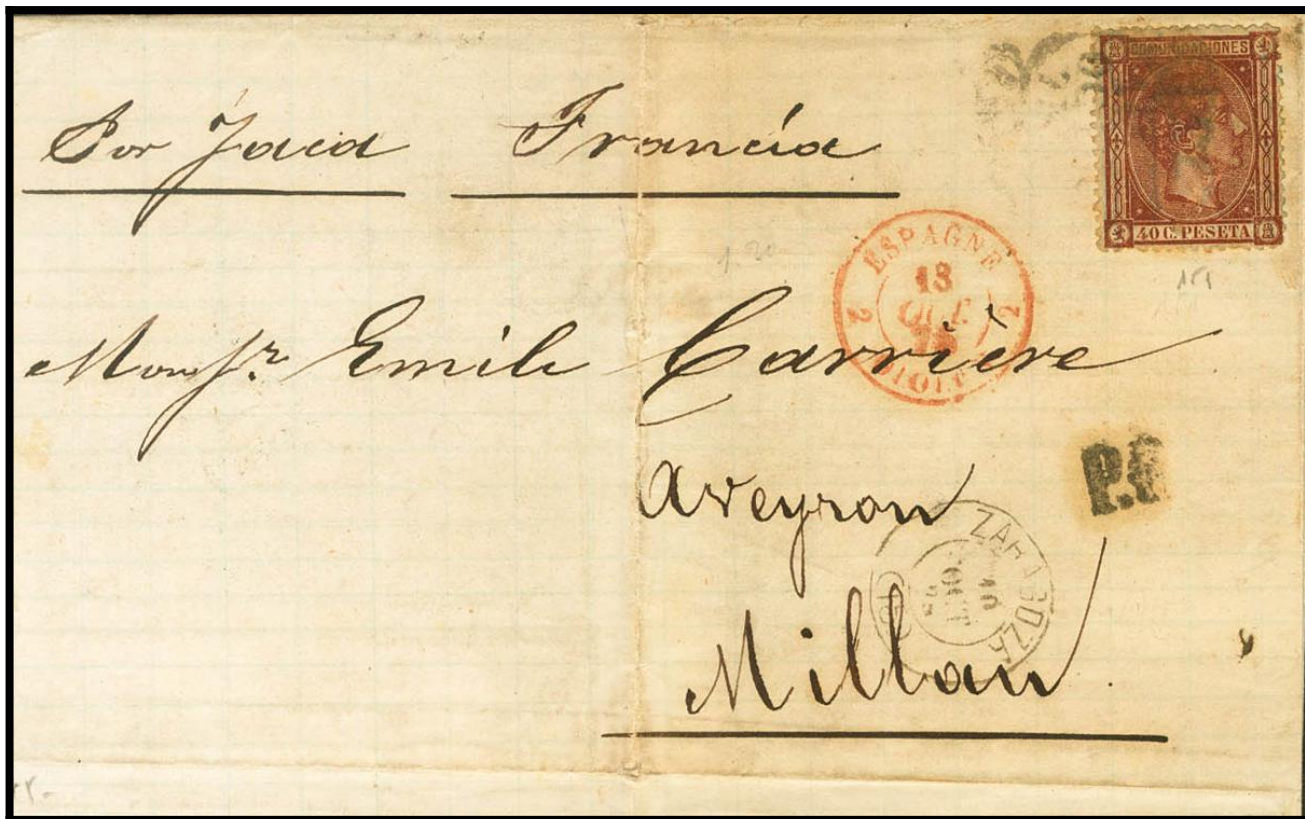 COMUNICACIONES
40 C. PESETA
Por Jaca Francia
ESPAGNE
2 18 2
OCT.
75
Monsr. Emile Carrière
Aveyron
P.
ZARAGOZA
OCT
Millau